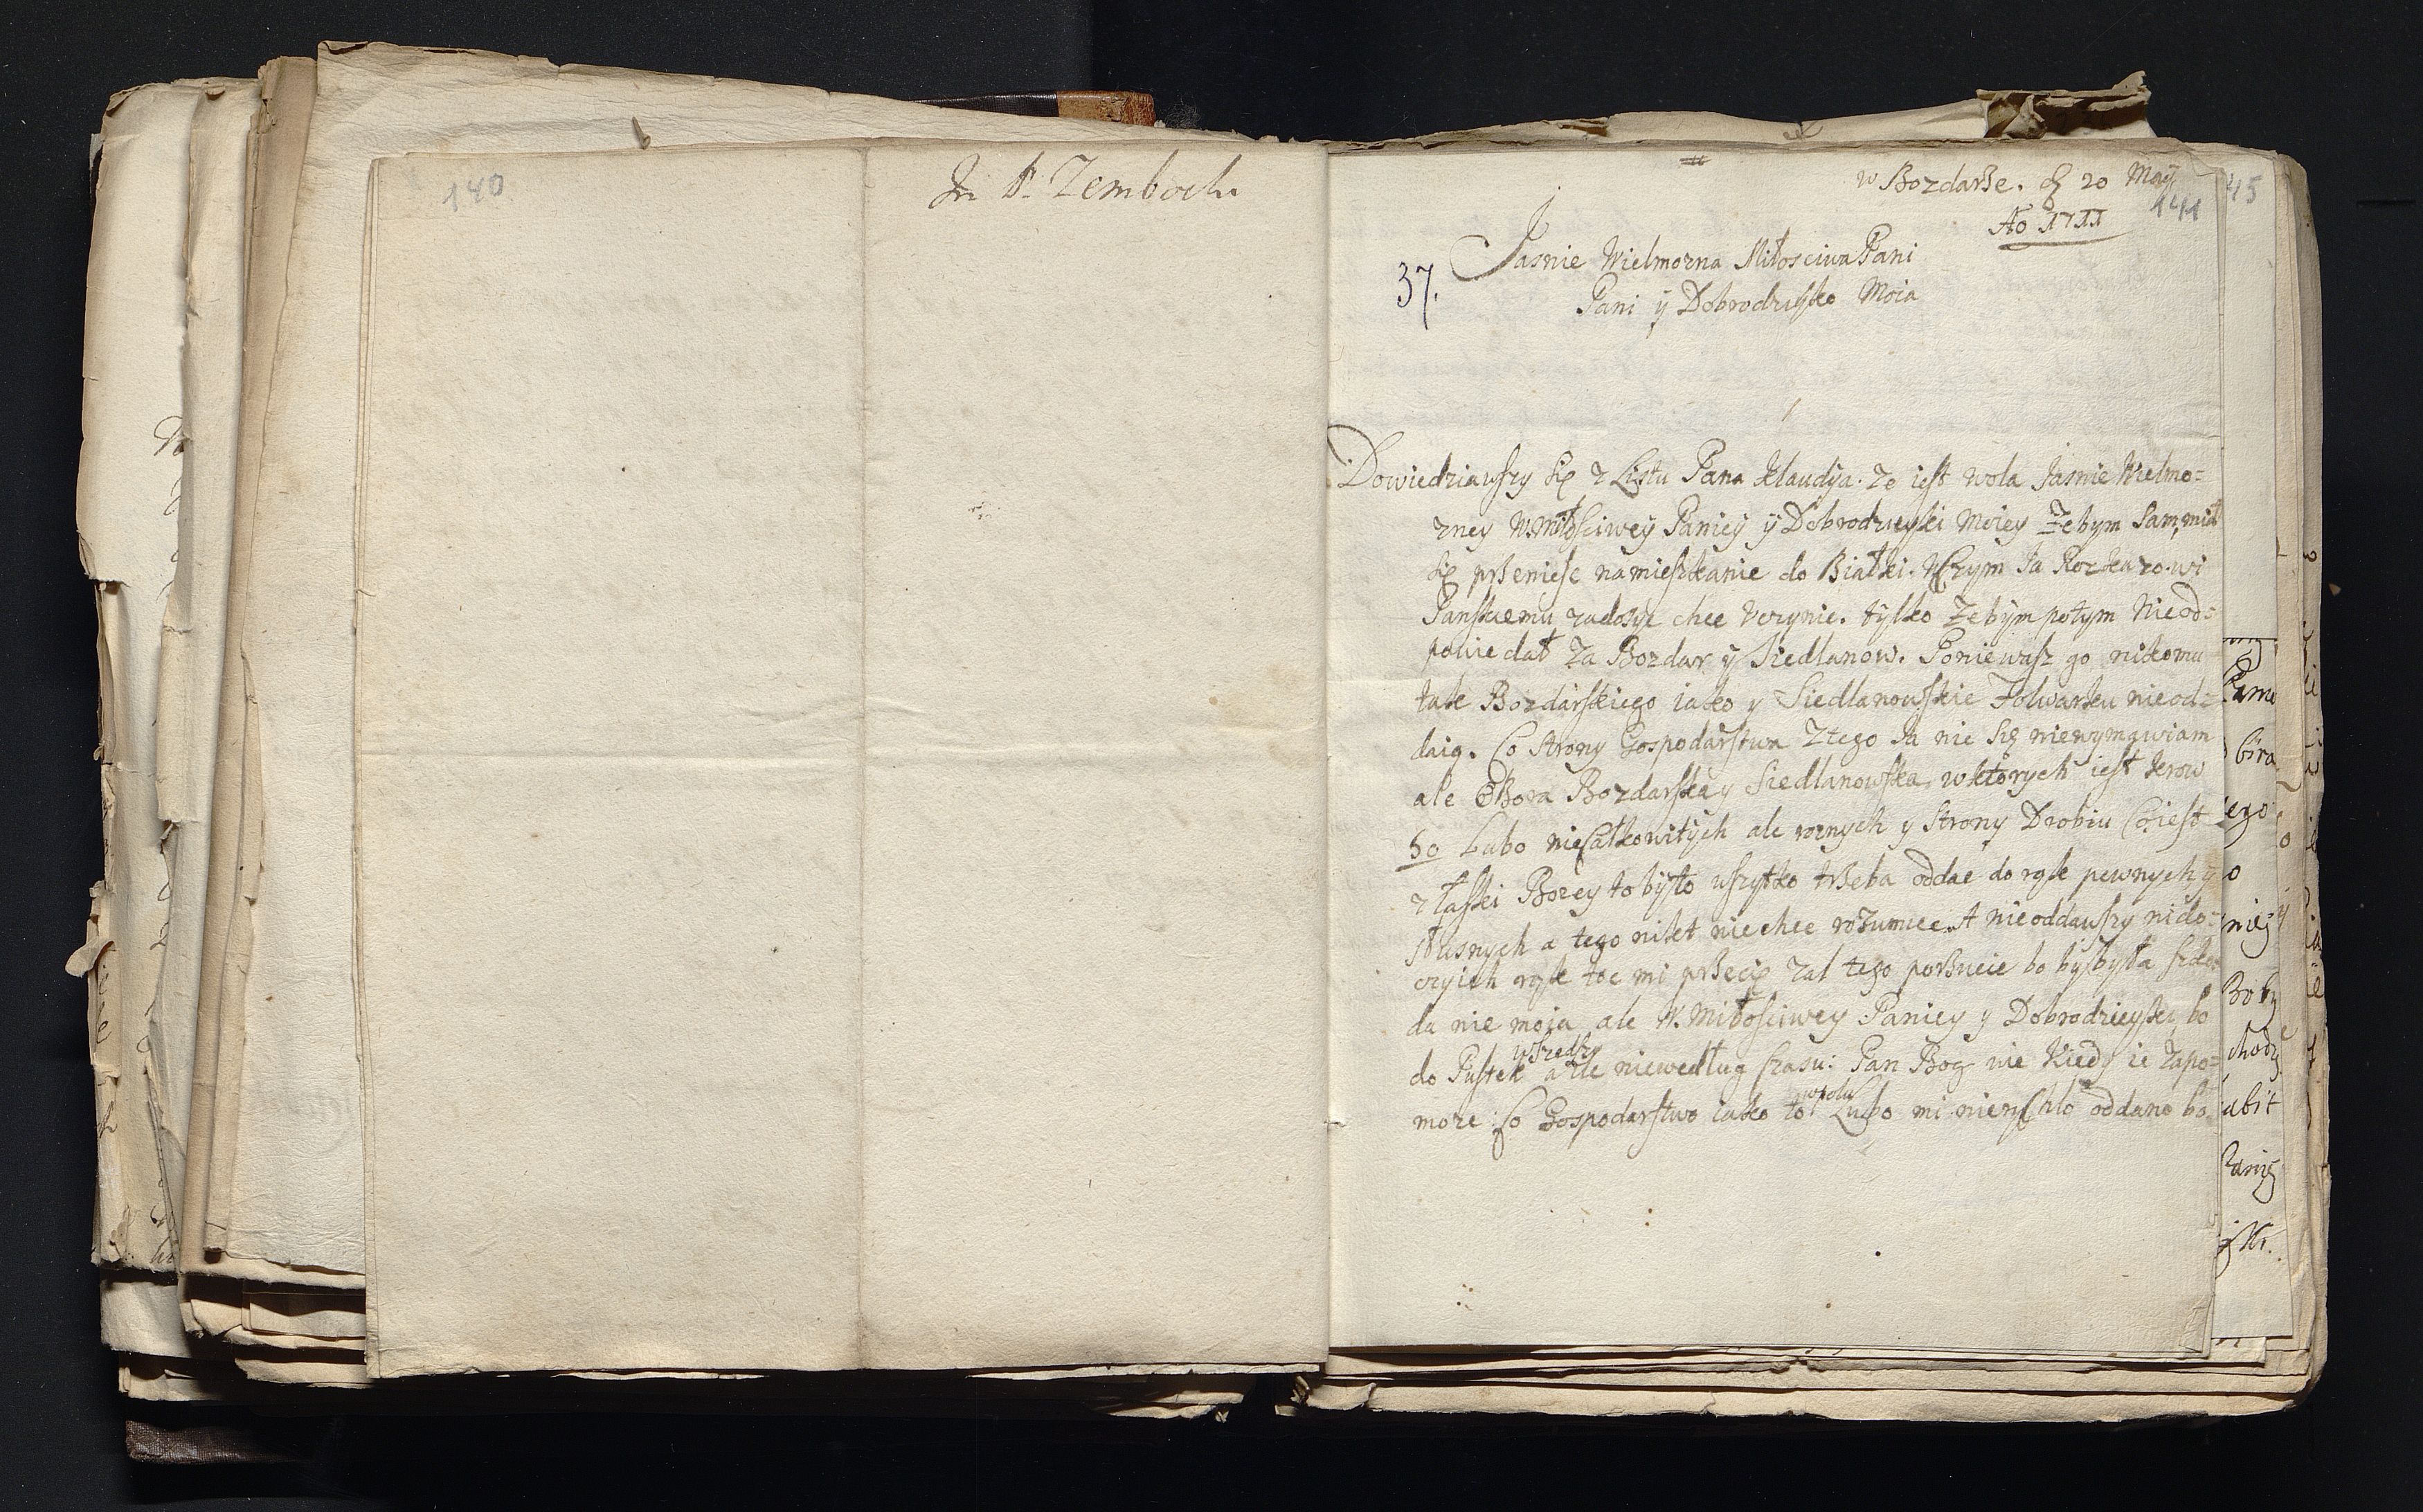 140
w Bozdarze. d 20 Maÿ
141
Ao 1711
37.
Jasnie Wielmozna Miłosciwa Pani
Pani ÿ Dobrodzieyko Moia
Dowiedziawszy się z Listu Pana Klaudÿa. Ze iest wola Jasnie Wielmo=
zney W. Miłosciwey Paniey ÿ Dobrodzieyki Moiey Zebym Sam miał
się przeniesc na mieszkanie do Białki. W Czym Ja Rozkazowi
Panskiemu zadosyc chce Vczynic. tylko Zebÿm potym Nieod=
powiedał Za Bozdar ÿ Siedlanow. Poniewasz go nikomu
tak Bozdarskiego iako y Siedlanowskie Folwarku nieod=
daię. Co Strony Gospodarstwa Z tego Ja nie Się niewymawiam
ale Obora Bozdarska y Siedlanowska, w ktorych iest krow
50 Lubo nie Całkowitÿch ale roznych y Strony Drobiu Co iest
z łaski Bozey to bÿło wszytko trzeba oddac do rąk pewnych ÿ
słusnych a tego nikt nie chce rozumiec. A nie oddawszy nido=
czyich rąk toc mi przecię Zal tego porzucic bo by była szko=
da nie moja ale W. Miłosciwey Paniey y Dobrodzieyki, bo
wszedszy
do Pustek a ile niewedług Czasu: Pan Bog wie Kiedy ie Zapo=
wpolu
moze: Co Gospodarstwo iako to Lubo mi nierychło oddano bo
45